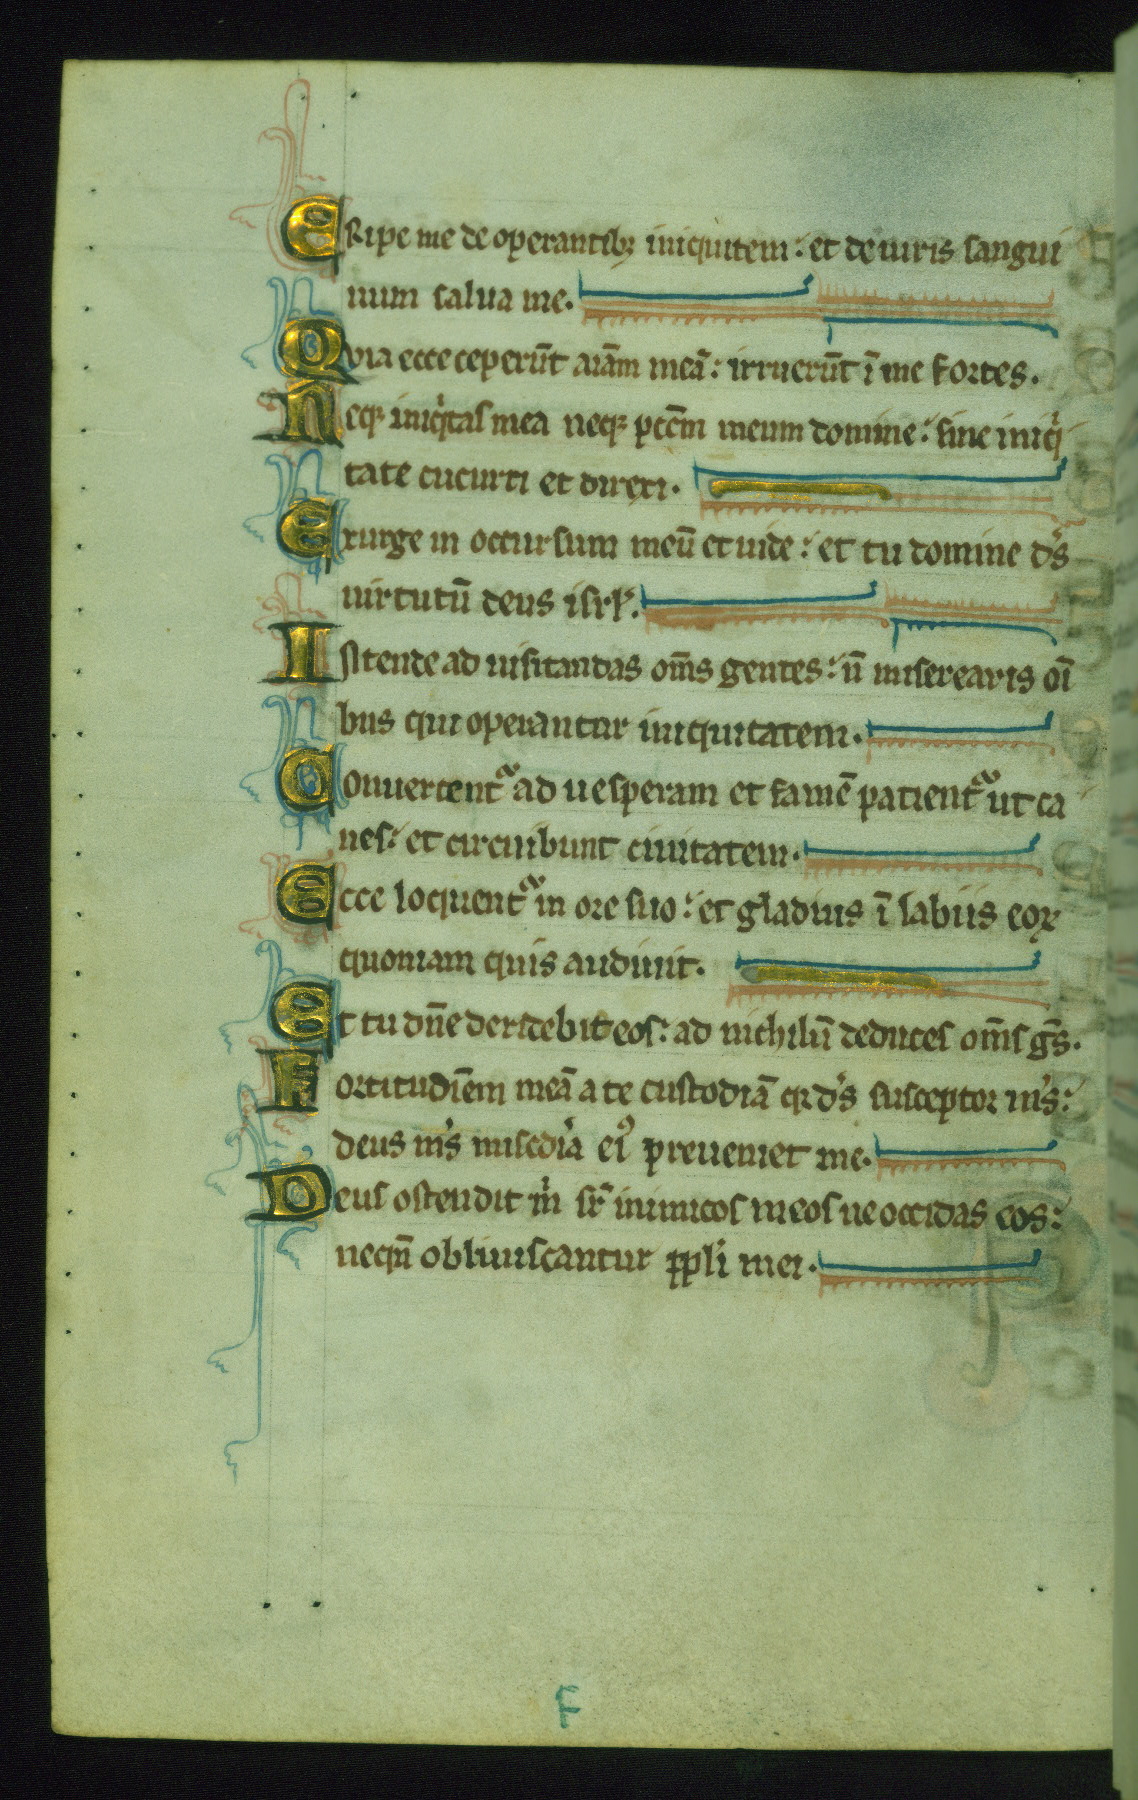 ERipe me de operantibꝫ iniquitem: et de uiris sangui
num salua me.
Quia ecce ceperūt aīam meā: irruerūt ī me fortes.
Neqꝫ iniqͥtas mea neqꝫ pctm̄ meum domine: sine iniqͥ
tate cucurri et direxi.
Exurge in occursum meū et uide: et tu domine ds̄
uirtutū deus isrl̓.
Intende ad uisitandas om̄s gentes: n̄ miserearis oī
bus qui operantur iniquitatem.
Conuertentᷓ ad uesperam et famē patientᷓ ut ca
nes: et circuibunt ciuitatem.
Ecce loquentᷓ in ore suo: et gladius ī labiis eoꝝ
quoniam quis audiuit.
Et tu dn̄e deridebit eos: ad nichilū deduces om̄s gn̄s.
Fortitudīem meā a te custodiā qr ds̄ susceptor ms̄:
deus ms̄ misc̄dia ei᷒ preueniet me.
Deus ostendit m̍ sr̄ inimicos meos ne occidas eos:
neqn̄ obliuiscantur ppl̓i mei.
f